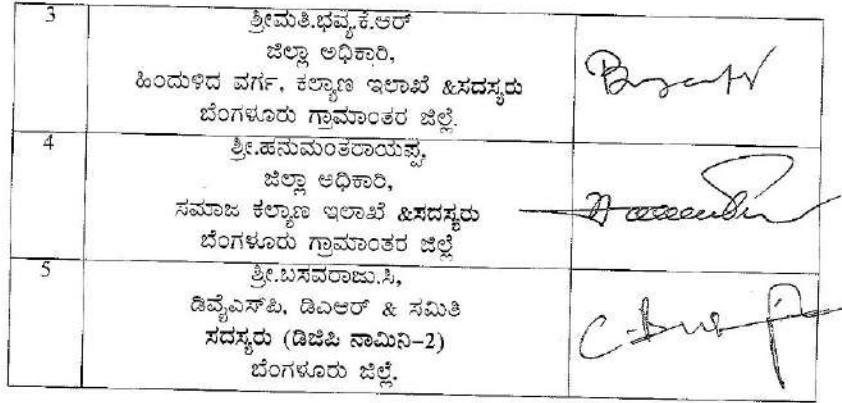 3
ಶ್ರೀಮತಿ.ಭವ್ಯ.ಕೆ.ಆರ್
ಜಿಲ್ಲಾ ಅಧಿಕಾರಿ,
ಹಿಂದುಳಿದ ವರ್ಗ, ಕಲ್ಯಾಣ ಇಲಾಖೆ &ಸದಸ್ಯರು
ಬೆಂಗಳೂರು ಗ್ರಾಮಾಂತರ ಜಿಲ್ಲೆ.
4
ಶ್ರೀ.ಹನುಮಂತರಾಯಪ್ಪ,
ಜಿಲ್ಲಾ ಅಧಿಕಾರಿ,
ಸಮಾಜ ಕಲ್ಯಾಣ ಇಲಾಖೆ &ಸದಸ್ಯರು
ಬೆಂಗಳೂರು ಗ್ರಾಮಾಂತರ ಜಿಲ್ಲೆ
5
ಶ್ರೀ.ಬಸವರಾಜು.ಸಿ,
ಡಿವೈಎಸ್‌ಪಿ, ಡಿಎಆರ್ & ಸಮಿತಿ
ಸದಸ್ಯರು (ಡಿಜಿಪಿ ನಾಮಿನಿ-2)
ಬೆಂಗಳೂರು ಜಿಲ್ಲೆ.